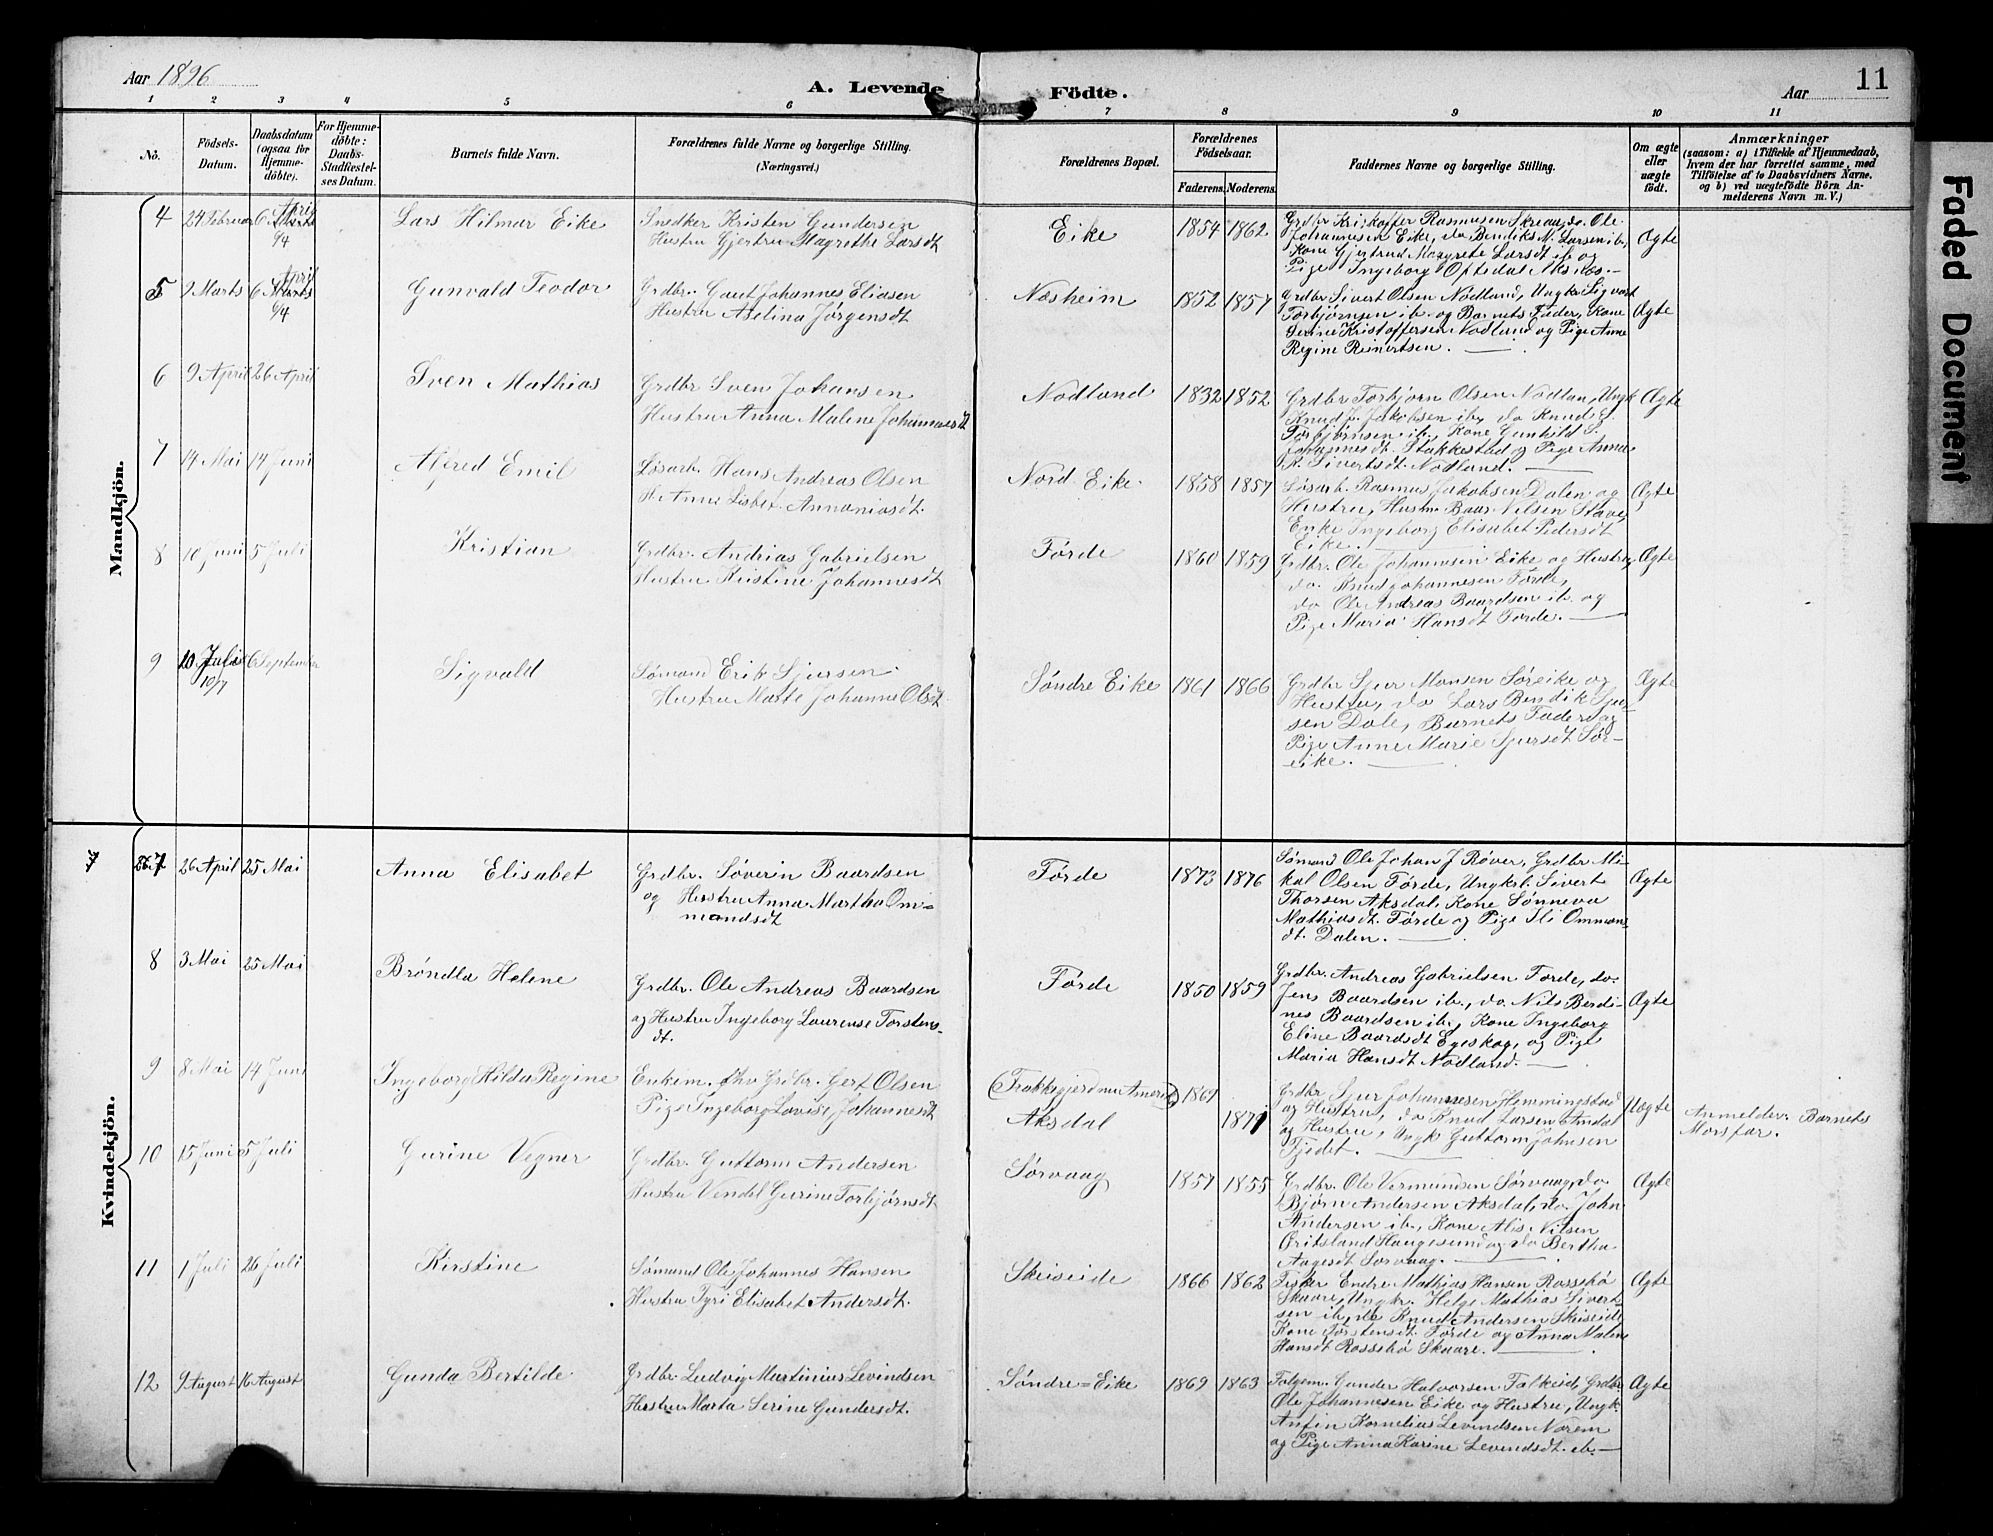 Aar 1896
A. Levende Födte.
Aar
11
1 2 3 4 5 6 7 8 9 10 11
No.
Födsels-
Datum.
Daabsdatum
(ogsaa for
Hjemme-
döbte).
For Hjemme-
döbte:
Daabs-
Stadfæstel-
ses Datum.
Barnets fulde Navn.
Forældrenes fulde Navne og borgerlige Stilling.
(Næringsvei.)
Forældrenes Bopæl.
Forældrenes
Födselsaar.
Faderens. Moderens.
Faddernes Navne og borgerlige Stilling.
Om ægte
eller
uægte
födt.
Anmærkninger
(saasom: a) i Tilfælde af Hjemmedaab,
hvem der har forrettet samme, med
Tilföielse af to Daabsvidners Navne,
og b) ved uægtefödte Börn An-
melderens Navn m. V.)
Mandkjön.
4
24 Februar
6 Marts April
6/4
Lars Hilmar Eike
Snedker Kristen Gundersen
Hustru Gjertru Magrethe Larsdt
Eike
1854 1862
Grdbr Kristoffer Rasmusen Skreaa, do. Ole
Johannesen Eike, do Bendiks M. Larsen ib,
Kone Gjertrud Margrete Larsdt ib og
Pige Ingeborg Opsdal Aksnes.—
Ægte
5
9 Marts
6 Marts April
6/4
Gunvald Teodor
Grdbr. Gaut Johannes Eliasen
Hustru Aselina Jørgensdt
Næsheim
1852 1857
Grdbr Sivert Olsen Nödland, Ungk Sigvart
Torbjørnsen ib. og Barnets Fader, Kone
Serine Kristoffersen Nodland og Pige Anne
Regine Reinertsen. —
Ægte
6
9 April
26 April
Sven Mathias
Grdbr Sven Johansen
Hustru Anna Malene Johannesdt
Nodland
1832 1852
Grdbr Torbjörn Olsen Nodlan, Ungk
Knud J. Jakobsen ib, do Knud S.
Torbjørnsen ib, Kone Gunhild S.
Johannesdt. Stakkestad og Pige Anna
R. Sivertsdt. Nodland. —
Ægte
7
14 Mai
14 Juni
Alfred Emil
Løsarb. Hans Andreas Olsen
H. Anne Lisbet Annaniasdt.
Nord Eike
1858 1857
Løsarb. Rasmus Jakobsen Dalen og
Hustru, Husm. Baar Nilsen Stave,
Enke Ingeborg Elisabet Pedersdt
Eike.
Ægte
8
10 Juni
5 Juli
Kristian
Grdbr. Andrias Gabrielsen
Hustru Kristine Johannesdt
Førde
1860 1859
Grdbr. Ole Johannesen Eike og Hustru,
do. Knud Johannesen Førde,
do Ole Andreas Baardsen ib. og
Pige Maria Hansdt Førde. —
Ægte
9
10 Juli
10/7
6 September
Sigvald
Sømand Erik Sjursen
Hustru Marte Johanne Olsdt.
Søndre Eike
1861 1866
Grdbr Sjur Monsen Søreike og
Hustru, do Lars Bendik Sjur-
sen Dale, Barnets Fader og
Pige Anne Marie Sjursdt Sør-
eike. —
Ægte
Kvindekjön.
7
26 April
25 Mai
Anna Elisabet
Grdbr. Søverin Baardsen
og Hustru Anna Martha Om=
mandsdt
Førde
1873 1876
Sømand Ole Johan J Røver, Grdbr Mi-
kal Olsen Førde, Ungkrl. Sivert
Thorsen Aksdal, Kone Sønneva
Mathiasdt. Førde og Pige Ili Omman,
dt. Dalen. —
Ægte
8
3 Mai
25 Mai
Bröndla Helene
Grdbr. Ole Andreas Baardsen
og Hustru Ingeborg Laurense Torstens-
dt.
Førde
1850 1859
Grdbr. Andreas Gabrielsen Førde, do.
Jens Baardsen ib., do. Nils Berdi-
nes Baardsen ib., Kone Ingeborg
Eline Baardsdt Egeskog, og Pige
Maria Hansdt Nodland. —
Ægte
9
8 Mai
14 Juni
Ingeborg Hilda Regine
Enkem. fhv Grdbr. Gert Olsen
Pige Ingeborg Lovise Johannesdt
(Trakkegjerd nu Amerika)
Aksdal
1869
1871
Grdbr Sjur Johannesen Hemmingstad
og Hustru, do Knud Larsen Amdal
og Hustru, Ungk Guttorm Johnsen
Tjedet. —
Uægte
Anmelder. Barnets
Morsfar.
10
15 Juni
5 Juli
Gurine Vegner
Grdbr. Guttorm Andersen
Hustru Vendel Gurine Torbjørnsdt
Sørvaag
1857 1855
Grdbr. Ole Vermundsen Sørvaag, do
Bjørn Andersen Aksdal, do John
Andersen ib, Kone Alis Nilsen
Øritsland Haugesund og do Bertha
Aagesdt Sorvaag. —
Ægte
11
1 Juli
26 Juli
Kirstine
Sømand Ole Johannes Hansen
Hustru Tyri Elisabet Andersdt.
Skeiseide
1866 1862
Fisker Endre Mathias Hansen Rossebø
Skaare, Ungkr. Helge Mathias Sivert
sen ib, do Knud Andersen Skeiseide
Kone Torstensdt. Førde og Anna Malene
Hansdt Rossebø Skaare. —
Ægte
12
9 August
16 August
Gunda Bertilde
Grdbr. Ludvig Martinius Levindsen
Hustru Marta Serine Gundersdt.
Søndre=Eike
1869 1863
Folgem. Gunder Halvorsen Falkeid, Grdbr
Ole Johannesen Eike og Hustru, Ungk.
Anfin Kornelius Levindsen Norem
og Pige Anna Karine Levendsdt. ib.—
Ægte
Faded Document